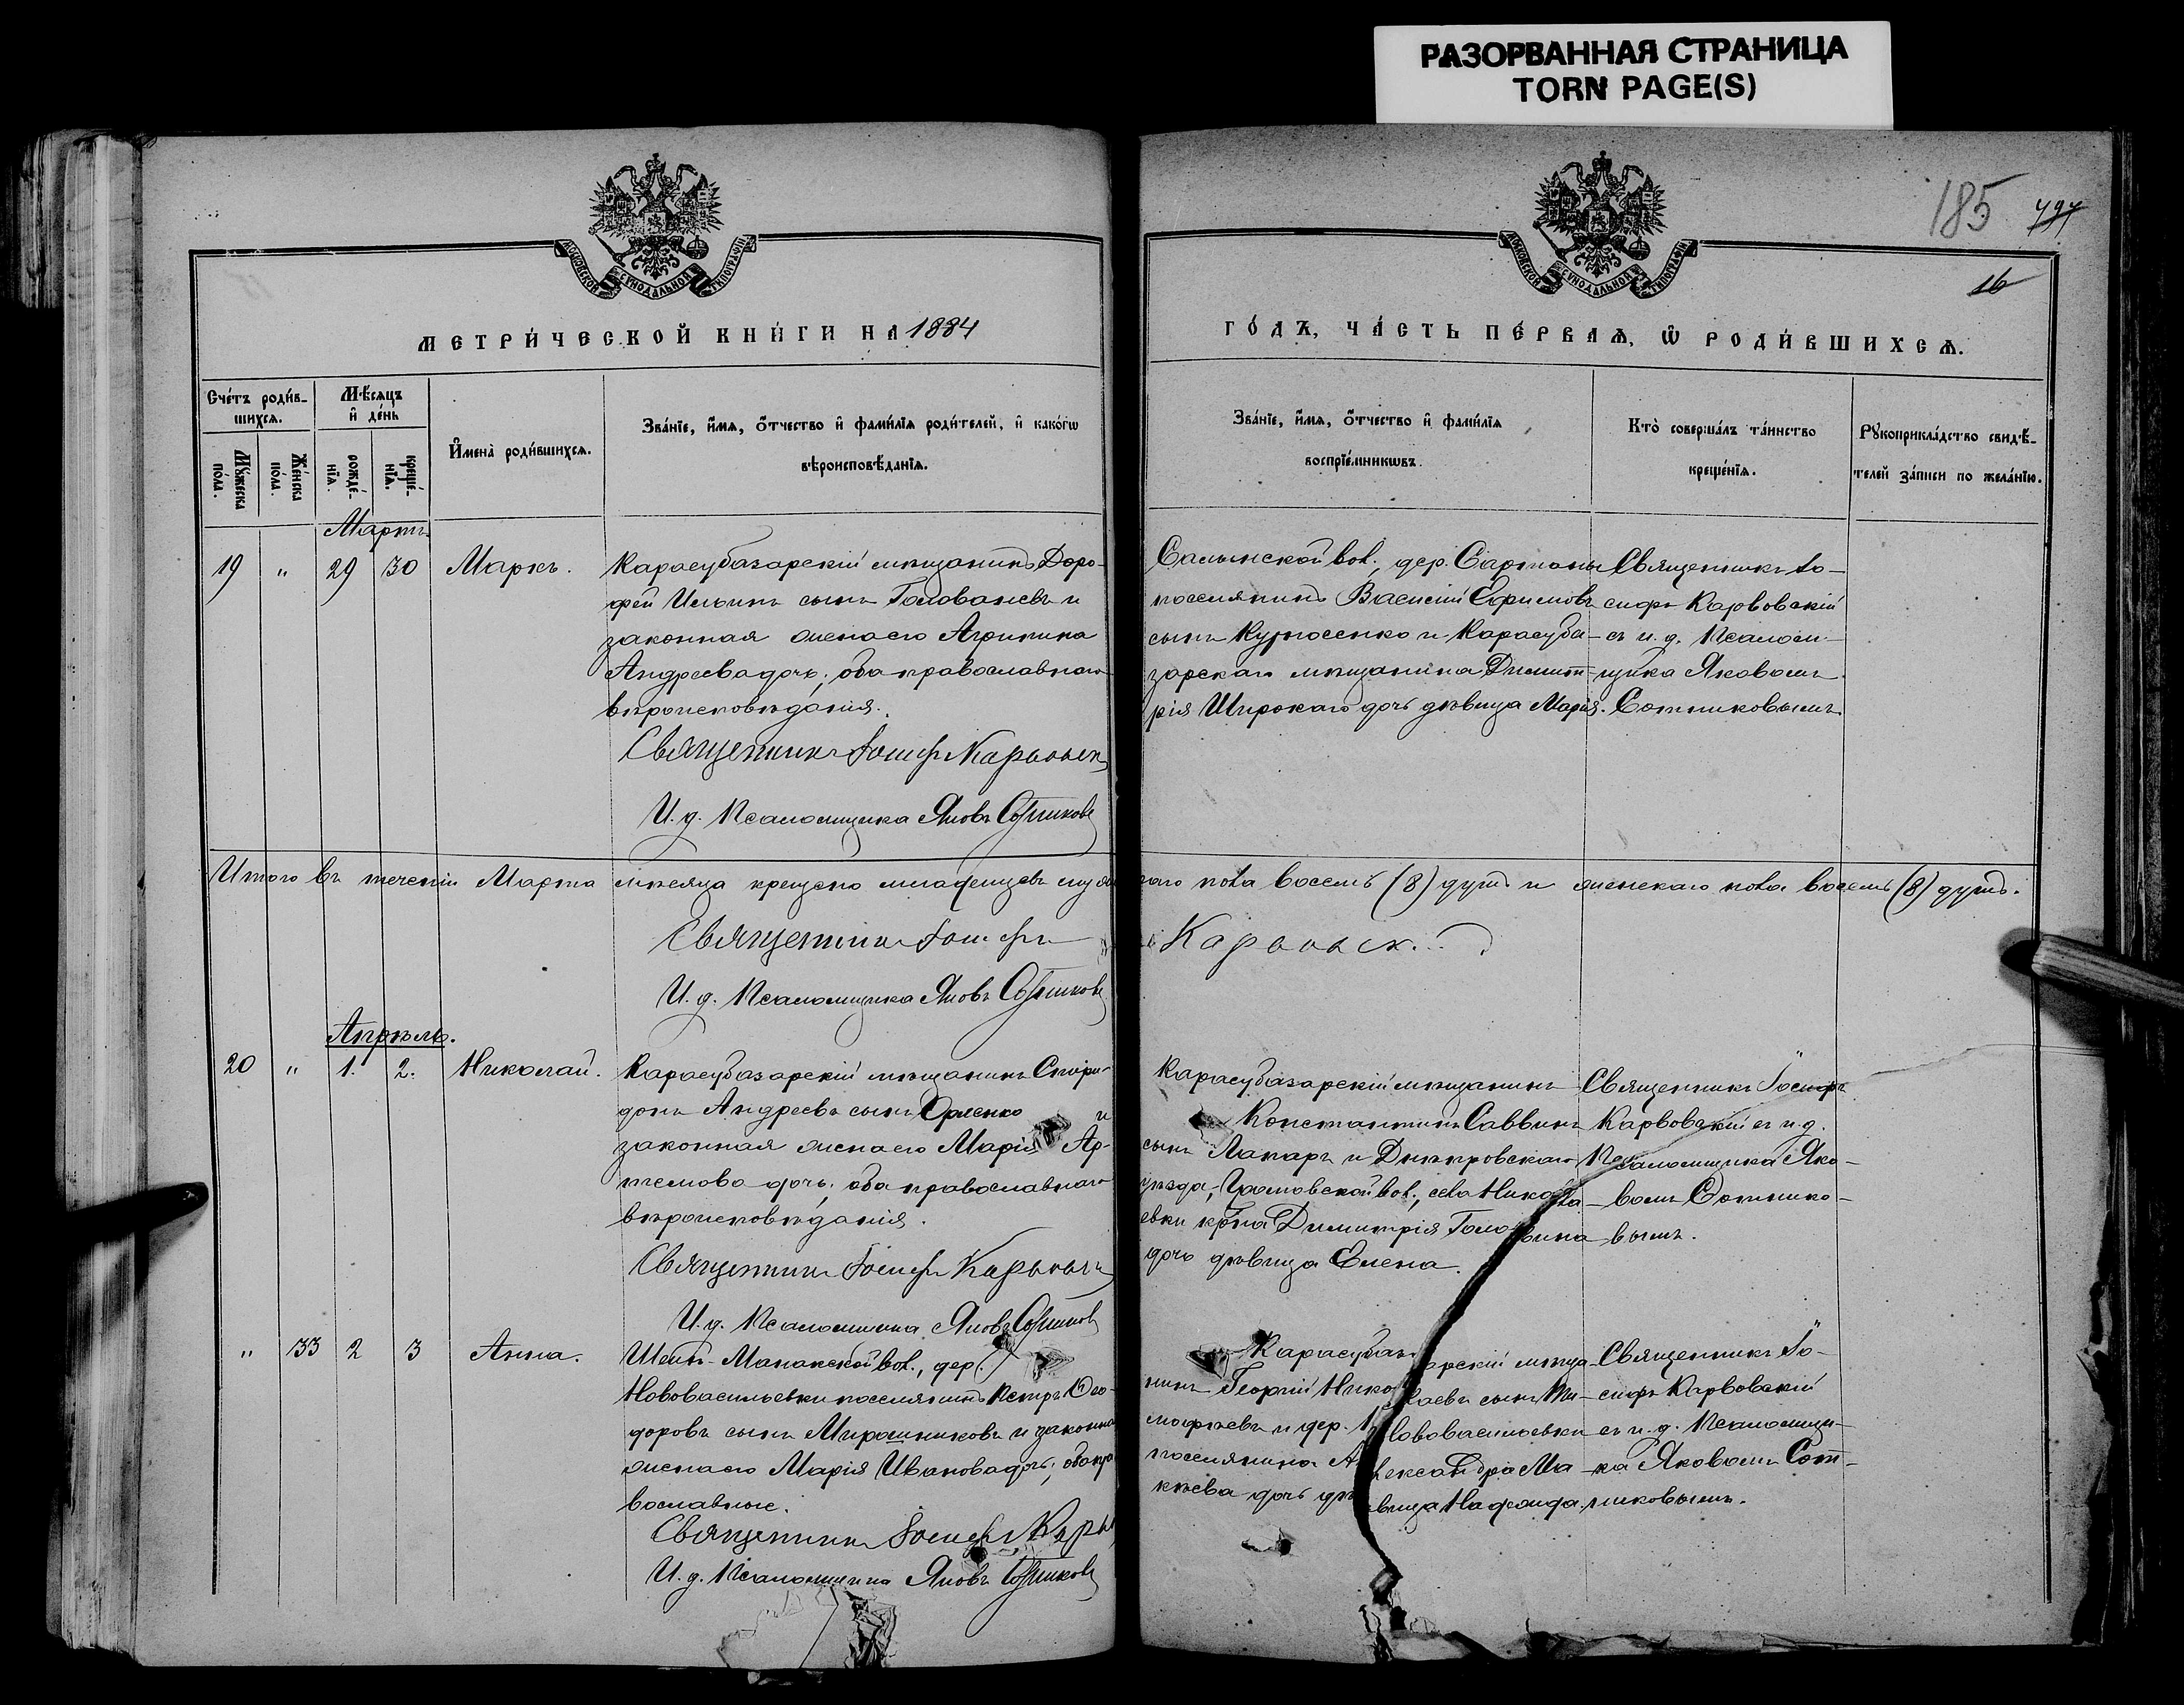 РАЗОРВАННАЯ СТРАНИЦА
TORN PAGE(S)
185
16
МОСКОВСКОЙ СѴНОДАЛЬНОЙ ТИПОГРАФІИ
МОСКОВСКОЙ СѴНОДАЛЬНОЙ ТИПОГРАФІИ
МЕТРИ́ЧЕСКОЙ КНИ́ГИ НА 1884
ГО́ДЪ, ЧА́СТЬ ПЕ́РВАѦ, Ѽ РОДИ́ВШИХСѦ.
Сче́тъ роди́в-
шихсѧ.
Мꙋ́жеска
по́ла.
Же́нска
по́ла.
Мѣ́сяцъ
и҆ де́нь
рожде́-
нїѧ.
креще́-
нїѧ.
И҆мена̀ роди́вшихсѧ.
Зва́нїе, и҆́мѧ, ѻ҆́тчество и҆ фами́лїѧ роди́телей, и҆ како́гѡ
вѣроисповѣ́данїѧ.
Зва́нїе, и҆́мѧ, ѻ҆́тчество и҆ фами́лїѧ
воспрїе́мникѡвъ.
Кто̀ соверша́лъ та́инство
креще́нїѧ.
Рꙋкоприкла́дство свидѣ́-
телей за́писи по жела́нїю.
Мартъ
19 " 29 30 Маркъ.
Карасубазарскій мѣщанинъ Доро-
фей Ильинъ сынъ Голованевъ и
законная жена его Агрипина
Андреева дочь; оба православнаго
вѣроисповѣданія.
Священникъ Іосифъ Карвовск
И. д. Псаломщика Яковъ Сотниковъ
Салынской вол., дер. Сартаны
поселянинъ Василій Ефимовъ
сынъ Курносенко и Карасуба-
зарскаго мѣщанина Димит-
рія Широкаго дочь дѣвица Марія.
Священникъ Іо-
сифъ Карвовскій
съ и. д. Псалом-
щика Яковомъ
Сотниковымъ.
Итого въ теченіи Марта мѣсяца крещено младенцевъ муж
скаго пола восемь (8) душъ и женскаго пола восемь (8) душъ.
Священникъ Іосифъ
Карвовск.
И. д. Псаломщика Яковъ Сотниковъ
Апрѣль.
20 " 1. 2. Николай.
Карасубазарскій мѣщанинъ Спири-
донъ Андреевъ сынъ Орленко и
законная жена его Марія Ар-
темова дочь; оба православнаго
вѣроисповѣданія.
Священникъ Іосифъ Карвовск
И. д. Псаломщика Яковъ Сотников
Карасубазарскій мѣщанинъ
Константинъ Саввинъ
сынъ Макаръ и Днѣпровскаго
уѣзда, Громовской вол., села Никола-
евки кр-на Димитрія Головина
дочь дѣвица Елена.
Священникъ Іосифъ
Карвовскій съ и. д.
Псаломщика Яко-
вомъ Сотнико-
вымъ.
" 33 2 3 Анна.
Шейх-Монакской вол., дер.
Нововасильевки поселянинъ Петръ Ѳео-
доровъ сынъ Мирошниковъ и законна
жена его Марія Иванова дочь; оба пра
вославные.
Священникъ Іосифъ Карв
И. д. Псаломщика Яковъ Сотниковъ
Карасубазарскій мѣща-
нинъ Георгій Николаевъ сынъ Ти-
мофѣевъ и дер. Нововасильевки
поселянина Александра Ма-
кѣева дочь дѣвица Надежда.
Священникъ Іо-
сифъ Карвовскій
съ и. д. Псаломщи-
ка Яковомъ Сот-
никовымъ.